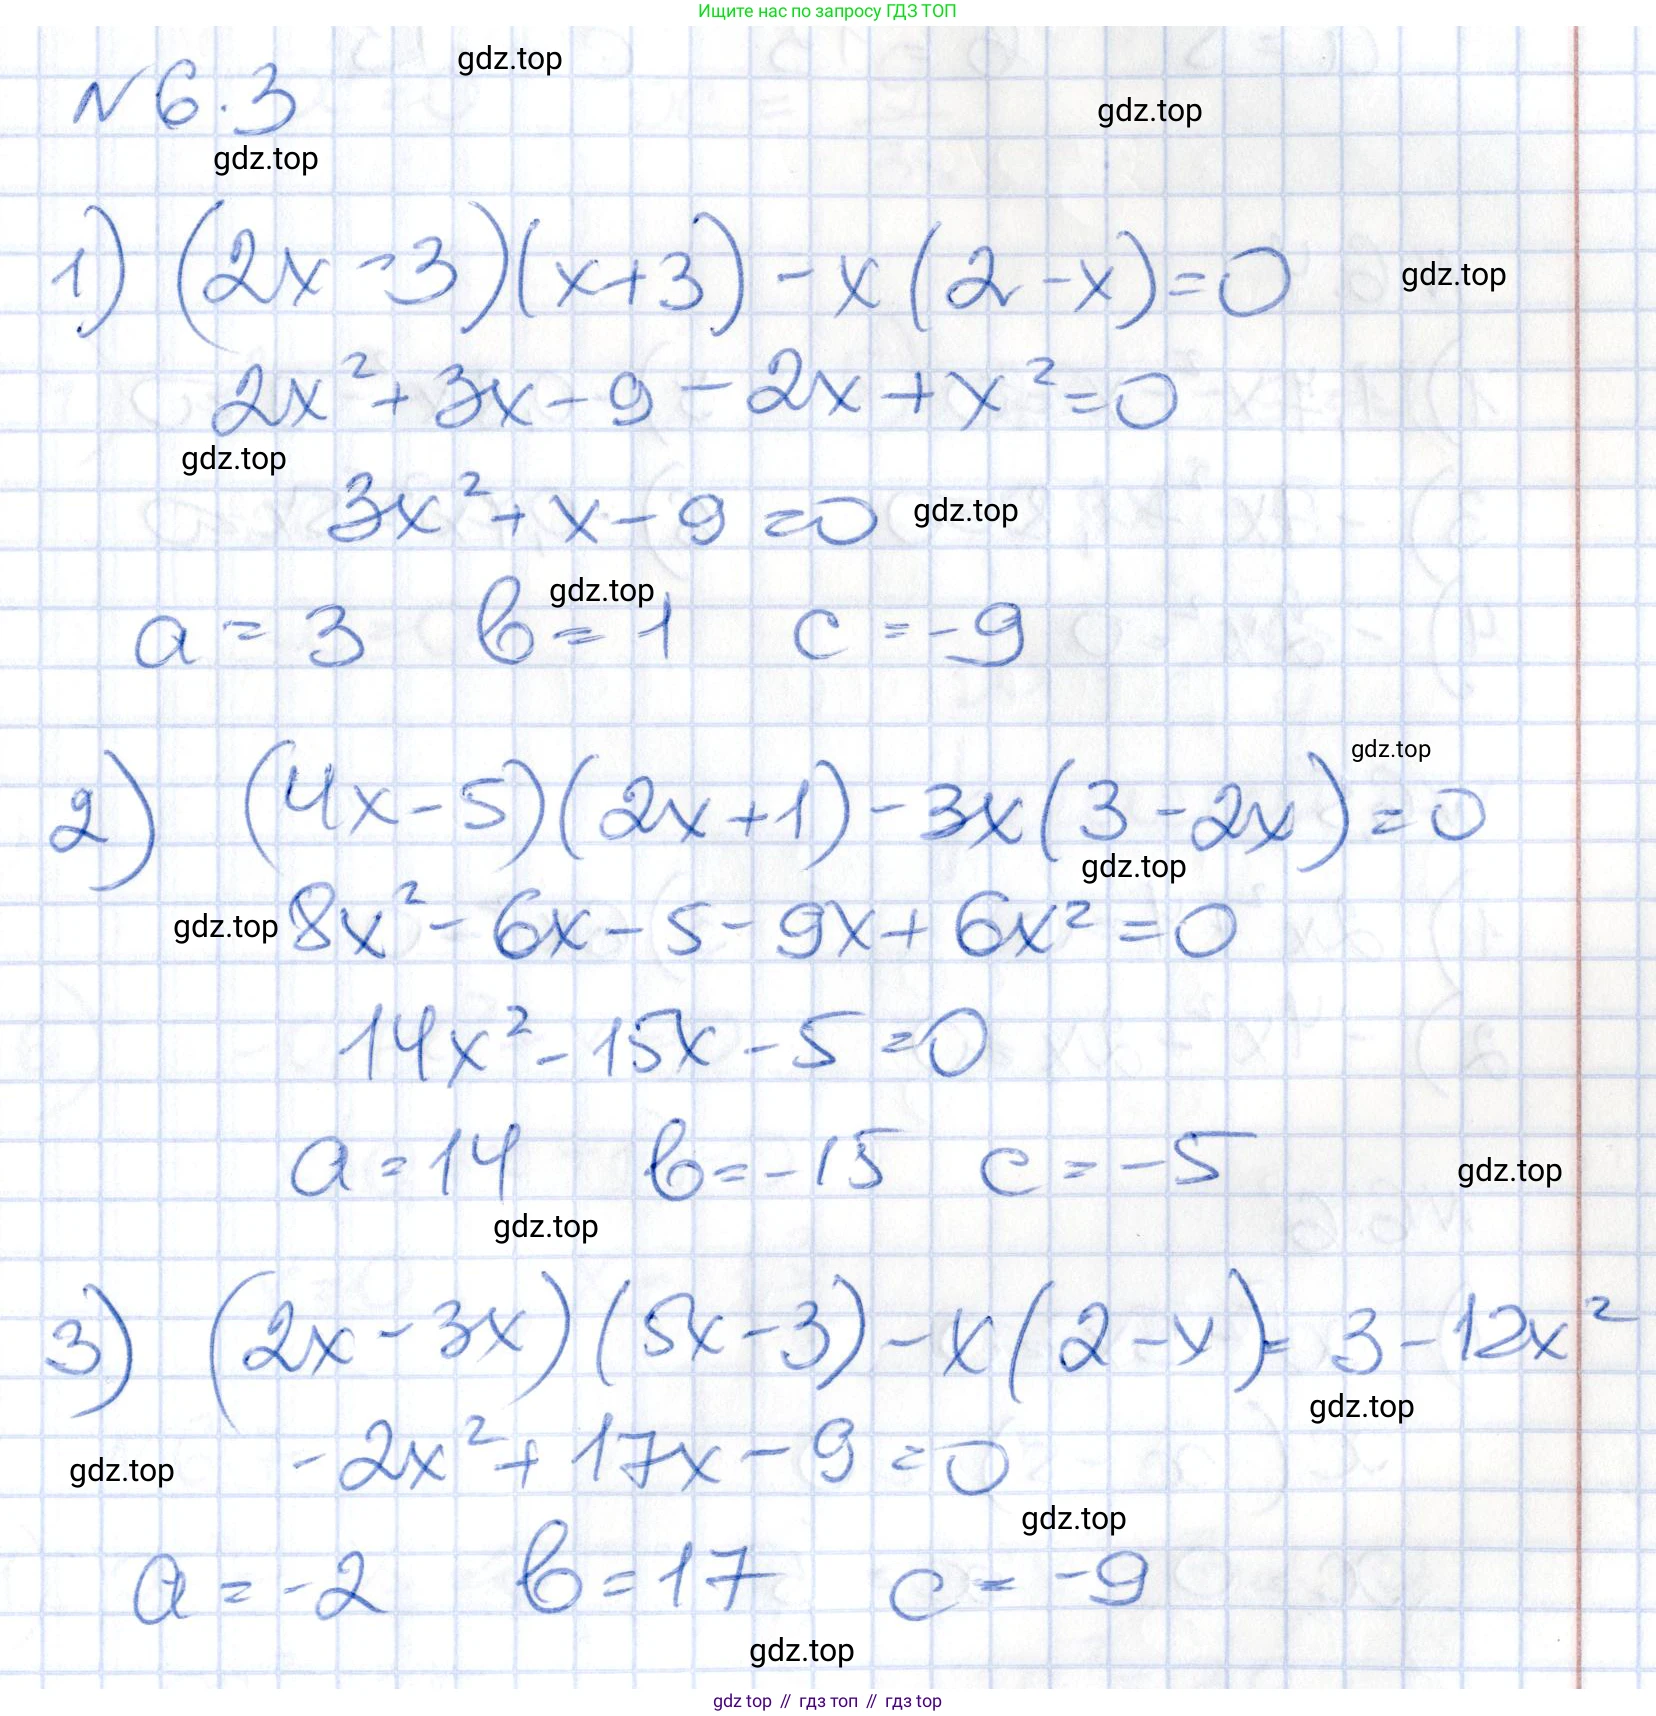 Ищите нас по запросу ГДЗ ТОП
gdz.top
№ 6.3
gdz.top
gdz.top
1) (2x - 3)(x+3) - x(2 - x) = 0
gdz.top
2x² + 3x - 9 - 2x + x² = 0
gdz.top
3x² + x - 9 = 0
gdz.top
gdz.top
a = 3 b = 1 c = -9
gdz.top
2) (4x - 5)(2x + 1) - 3x(3 - 2x) = 0
gdz.top
gdz.top
8x² - 6x - 5 - 9x + 6x² = 0
14x² - 15x - 5 = 0
a = 14 b = -15 c = -5
gdz.top
gdz.top
3) (2x - 3x)(5x - 3) - x(2 - x) = 3 - 12x²
gdz.top
-2x² + 17x - 9 = 0
gdz.top
gdz.top
a = -2 b = 17 c = -9
gdz.top
gdz top // гдз топ // гдз top